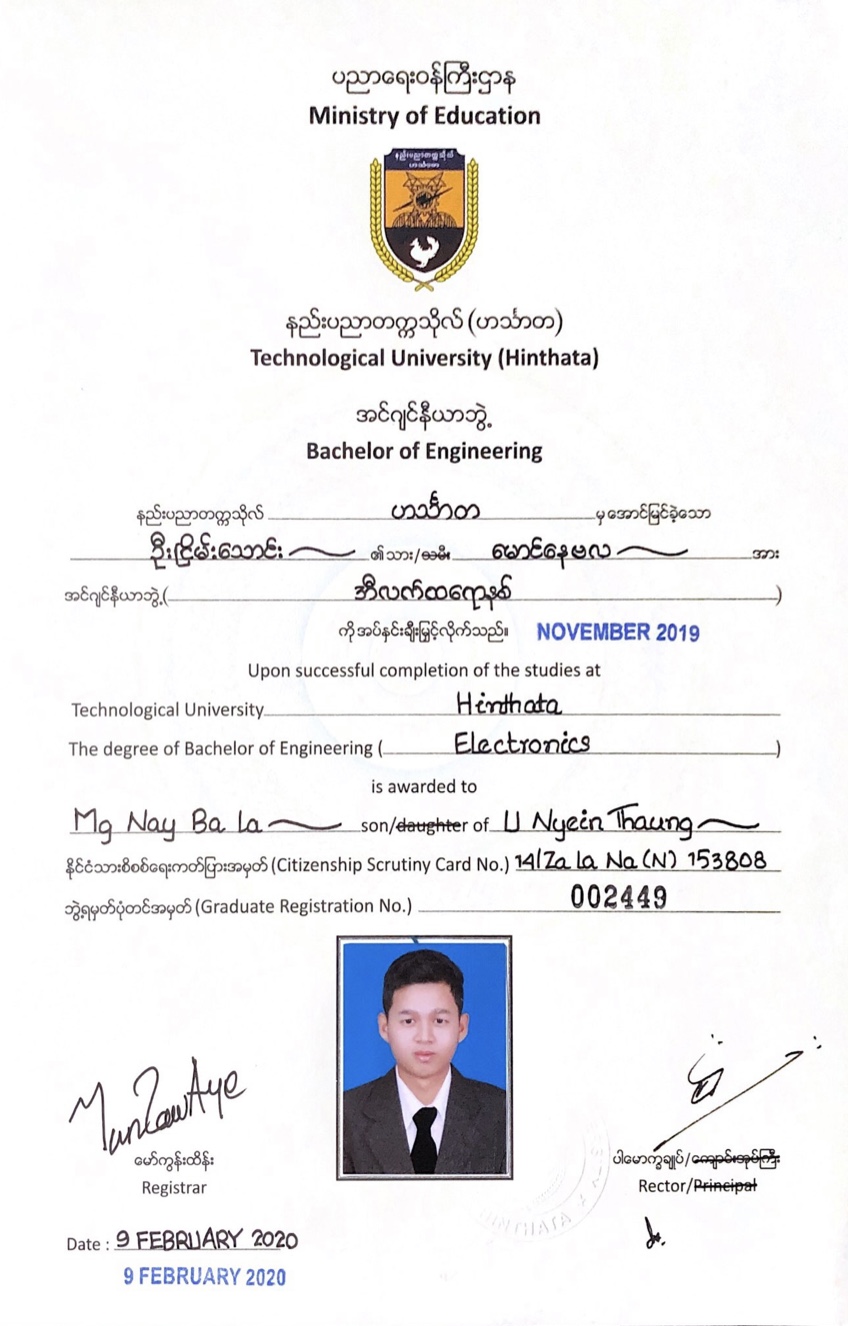 ပညာရေးဝန်ကြီးဌာန
Ministry of Education
နည်းပညာတက္ကသိုလ်
ဟင်္သာတ
နည်းပညာတက္ကသိုလ် (ဟင်္သာတ)
Technological University (Hinthata)
အင်ဂျင်နီယာဘွဲ့
Bachelor of Engineering
နည်းပညာတက္ကသိုလ် ဟင်္သာတ မှ အောင်မြင်ခဲ့သော
ဦးငြိမ်းသောင်း ၏ သား/သမီး မောင်နေဗလ အား
အင်ဂျင်နီယာဘွဲ့ (အီလက်ထရောနစ်)
ကို အပ်နှင်းချီးမြှင့်လိုက်သည်။ NOVEMBER 2019
Upon successful completion of the studies at
Technological University Hinthata
The degree of Bachelor of Engineering ( Electronics )
is awarded to
Mg Nay Ba La son/daughter of U Nyein Thaung
နိုင်ငံသားစိစစ်ရေးကတ်ပြားအမှတ် (Citizenship Scrutiny Card No.) 14/Za La Na (N) 153808
ဘွဲ့ရမှတ်ပုံတင်အမှတ် (Graduate Registration No.) 002449
မော်ကွန်းထိန်း
Registrar
ပါမောက္ခချုပ်/ကျောင်းအုပ်ကြီး
Rector/Principal
HINTHATA
Date : 9 FEBRUARY 2020
9 FEBRUARY 2020